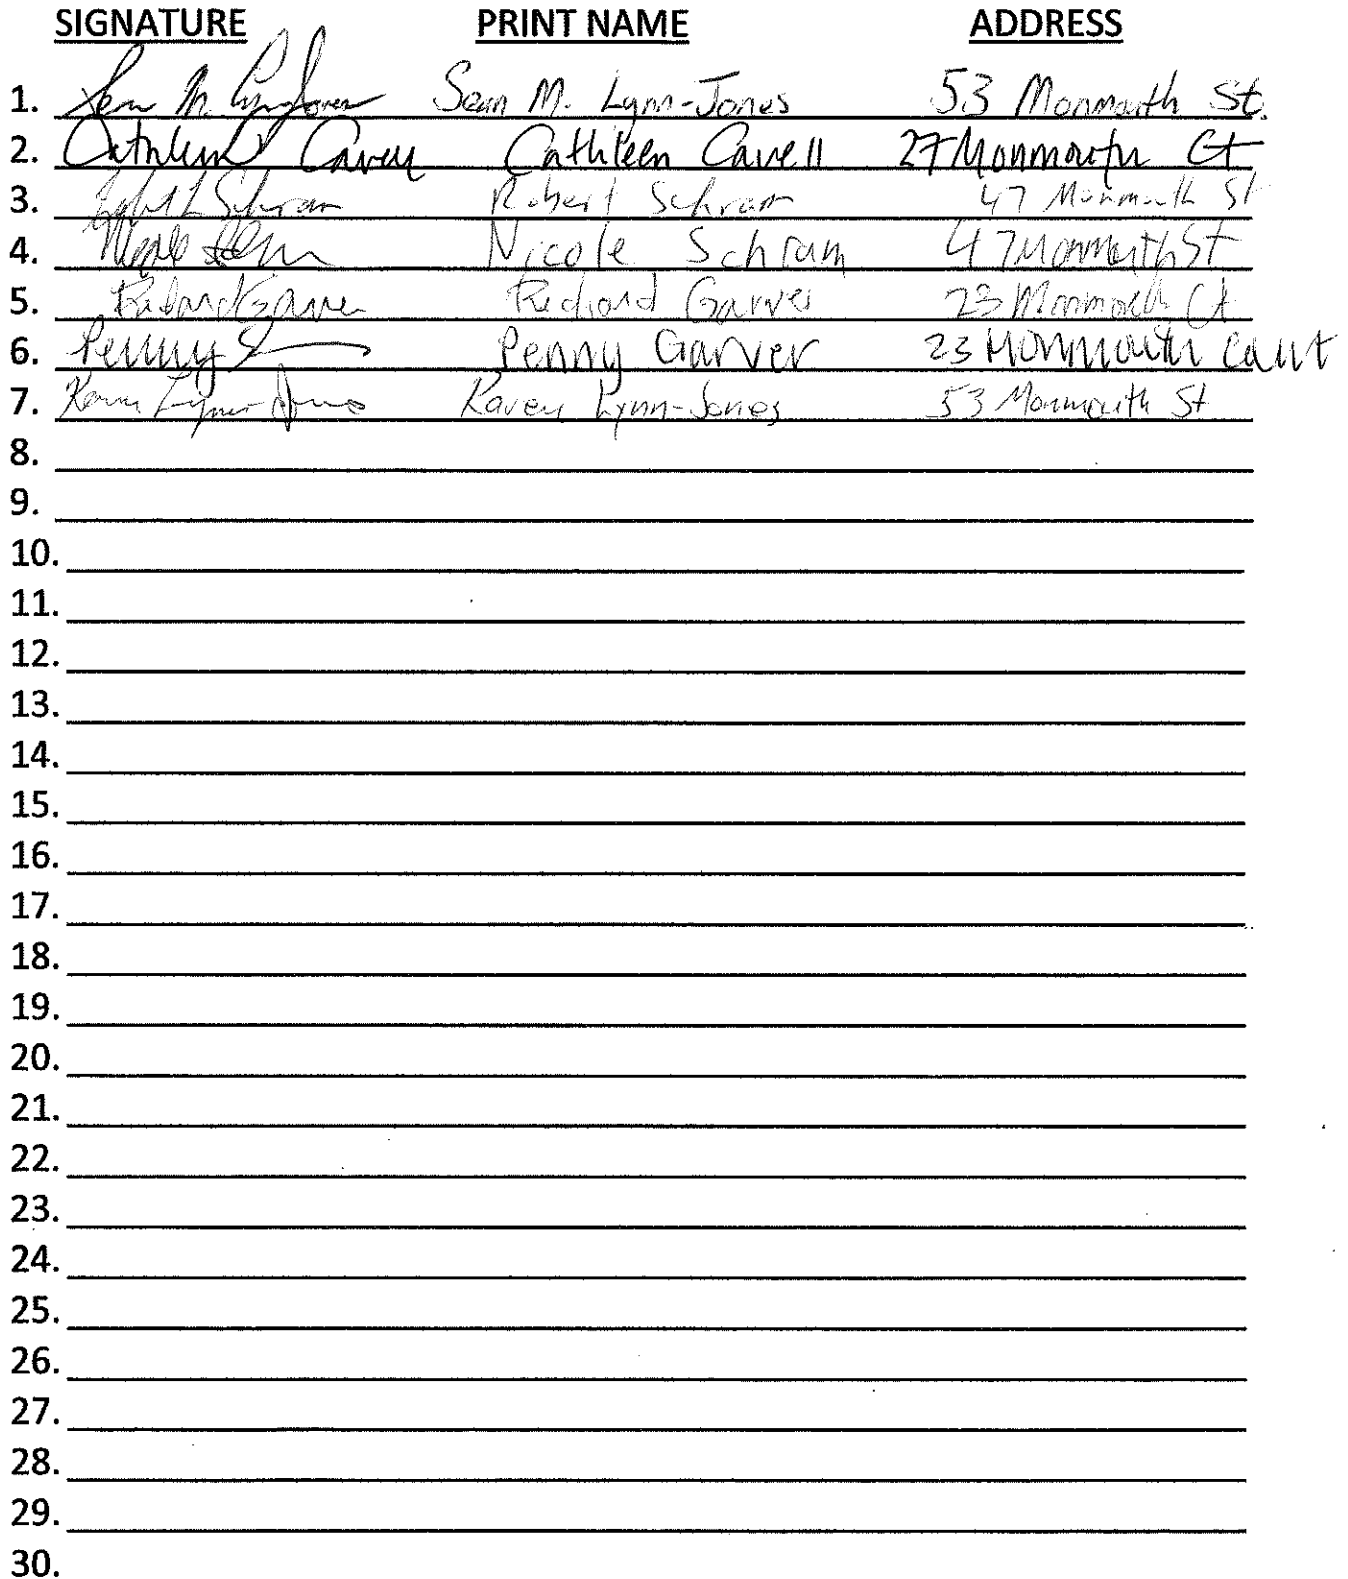 SIGNATURE PRINT NAME ADDRESS
1. Sean M. Lynn-Jones Sean M. Lynn-Jones 53 Monmouth St.
2. Cathleen Cavell Cathleen Cavell 27 Monmouth Ct
3. Robert L Schram Robert Schram 47 Monmouth St
4. Nicole Schram Nicole Schram 47 Monmouth St
5. Richard Garver Richard Garver 23 Monmouth Ct
6. Penny Penny Garver 23 Monmouth Court
7. Karen Lynn-Jones Karen Lynn-Jones 53 Monmouth St
8.
9.
10.
11.
12.
13.
14.
15.
16.
17.
18.
19.
20.
21.
22.
23.
24.
25.
26.
27.
28.
29.
30.